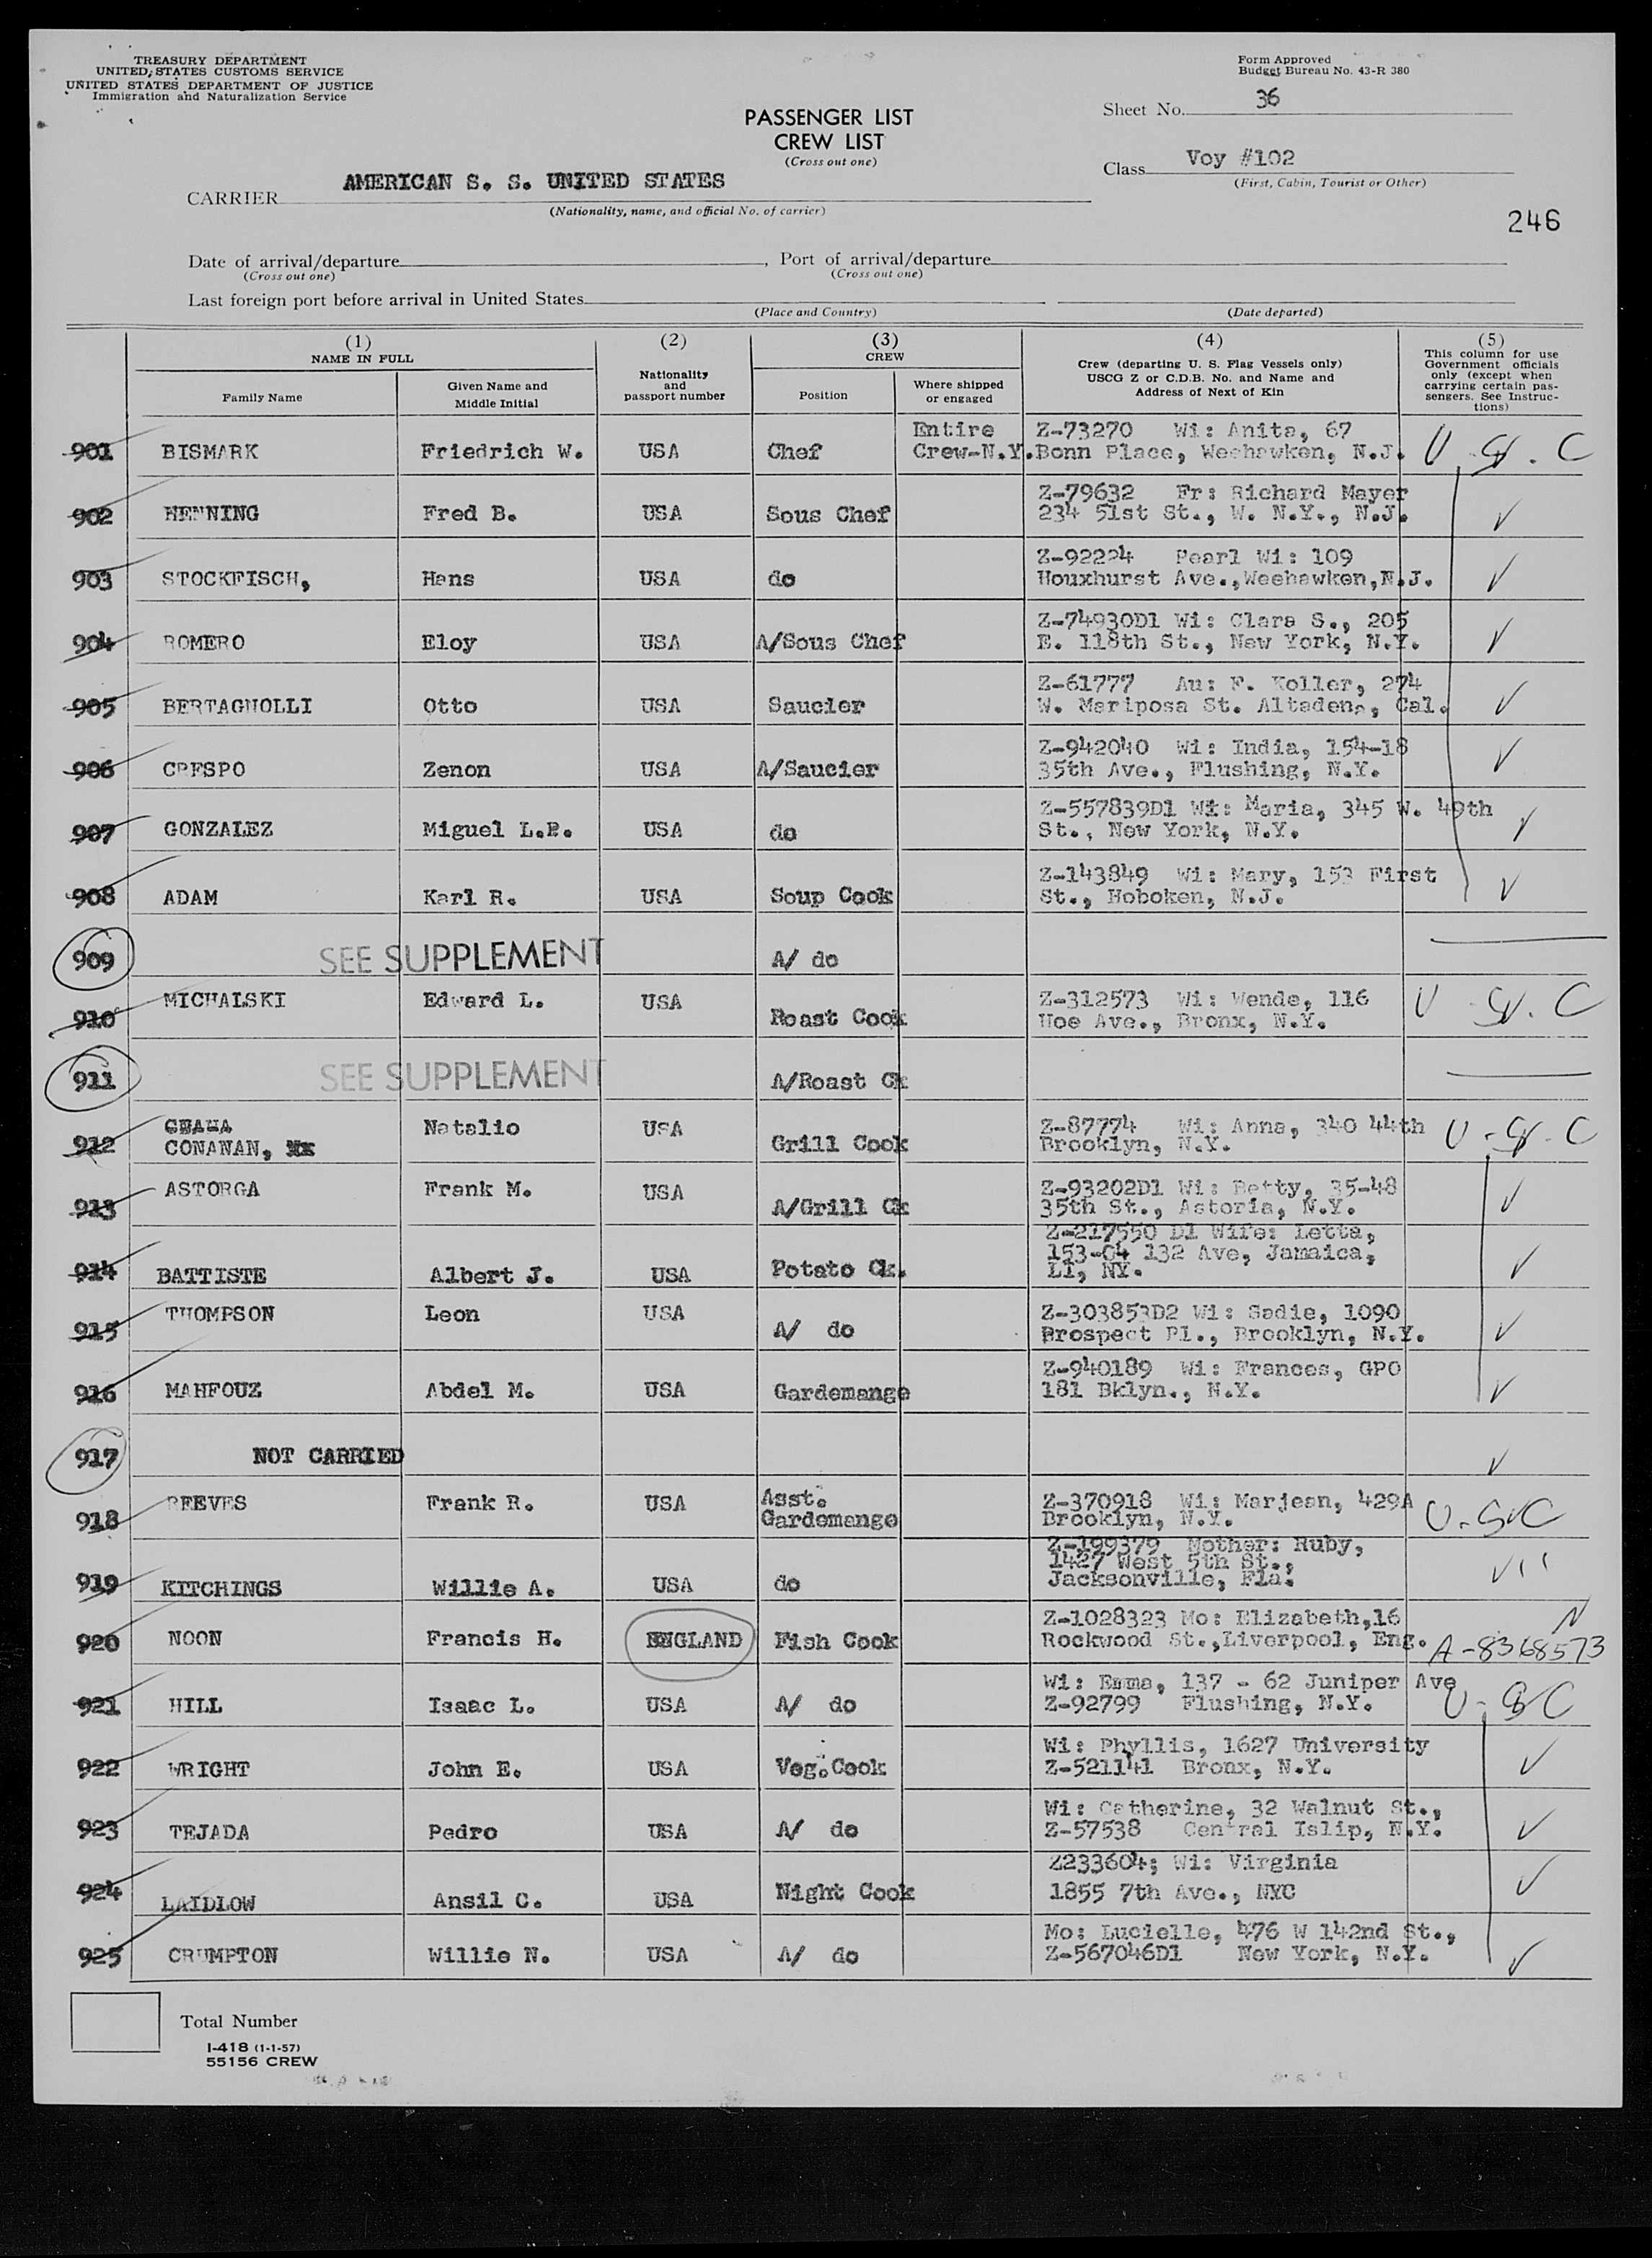 TREASURY DEPARTMENT
UNITED STATES CUSTOMS SERVICE
UNITED STATES DEPARTMENT OF JUSTICE
Immigration and Naturalization Service
Form Approved
Budget Bureau No. 43-R 380
PASSENGER LIST
CREW LIST
(Cross out one)
Sheet No. 36
Class Voy #102
(First, Cabin, Tourist or Other)
CARRIER AMERICAN S. S. UNITED STATES
(Nationality, name, and official No. of carrier)
246
Date of arrival/departure , Port of arrival/departure
(Cross out one) (Cross out one)
Last foreign port before arrival in United States
(Place and Country) (Date departed)
(1) NAME IN FULL
Family Name
Given Name and Middle Initial
(2) Nationality and passport number
(3) CREW
Position
Where shipped or engaged
(4) Crew (departing U. S. Flag Vessels only) USCG Z or C.D.B. No. and Name and Address of Next of Kin
(5) This column for use Government officials only (except when carrying certain passengers. See Instructions)
901 BISMARK Friedrich W. USA Chef Entire Crew-N.Y. Z-73270 Wi: Anita, 67 Bonn Place, Weehawken, N.J. U.S.C
902 HENNING Fred B. USA Sous Chef Z-79632 Fr: Richard Mayer 234 51st St., W. N.Y., N.J. ✓
903 STOCKFISCH, Hans USA do Z-92224 Pearl Wi: 109 Houxhurst Ave.,Weehawken,N.J. ✓
904 ROMERO Eloy USA A/Sous Chef Z-74930D1 Wi: Clara S., 205 E. 118th St., New York, N.Y. ✓
905 BERTAGNOLLI Otto USA Saucier Z-61777 Au: F. Koller, 274 W. Mariposa St. Altadena, Cal. ✓
906 CRESPO Zenon USA A/Saucier Z-942040 Wi: India, 154-18 35th Ave., Flushing, N.Y. ✓
907 GONZALEZ Miguel L.R. USA do Z-557839D1 Wi: Maria, 345 W. 49th St., New York, N.Y. ✓
908 ADAM Karl R. USA Soup Cook Z-143849 Wi: Mary, 153 First St., Hoboken, N.J. ✓
909 SEE SUPPLEMENT A/ do
910 MICHALSKI Edward L. USA Roast Cook Z-312573 Wi: Wende, 116 Hoe Ave., Bronx, N.Y. U.S.C
911 SEE SUPPLEMENT A/Roast Ck
912 CONANAN, Natalio USA Grill Cook Z-87774 Wi: Anna, 340 44th Brooklyn, N.Y. U.S.C
913 ASTORGA Frank M. USA A/Grill Ck Z-93202D1 Wi: Betty, 35-48 35th St., Astoria, N.Y. ✓
914 BATTISTE Albert J. USA Potato Ck. Z-217550 D1 Wife: Letta, 153-04 132 Ave, Jamaica, LI, NY. ✓
915 THOMPSON Leon USA A/ do Z-303853D2 Wi: Sadie, 1090 Prospect Pl., Brooklyn, N.Y. ✓
916 MAHFOUZ Abdel M. USA Gardemange Z-940189 Wi: Frances, GPO 181 Bklyn., N.Y. ✓
917 NOT CARRIED ✓
918 REEVES Frank R. USA Asst. Gardemange Z-370918 Wi: Marjean, 429A Brooklyn, N.Y. U.S.C
919 KITCHINGS Willie A. USA do Z-199379 Mother: Ruby, 1427 West 5th St., Jacksonville, Fla. ✓
920 NOON Francis H. ENGLAND Fish Cook Z-1028323 Mo: Elizabeth,16 Rockwood St.,Liverpool, Eng. N A-8368573
921 HILL Isaac L. USA A/ do Wi: Emma, 137 - 62 Juniper Ave Z-92799 Flushing, N.Y. U.S.C
922 WRIGHT John E. USA Veg.Cook Wi: Phyllis, 1627 University Z-521141 Bronx, N.Y. ✓
923 TEJADA Pedro USA A/ do Wi: Catherine, 32 Walnut St., Z-57538 Central Islip, N.Y. ✓
924 LAIDLOW Ansil C. USA Night Cook Z233604; Wi: Virginia 1855 7th Ave., NYC ✓
925 CRUMPTON Willie N. USA A/ do Mo: Lucielle, 476 W 142nd St., Z-567046D1 New York, N.Y. ✓
Total Number
I-418 (1-1-57)
55156 CREW